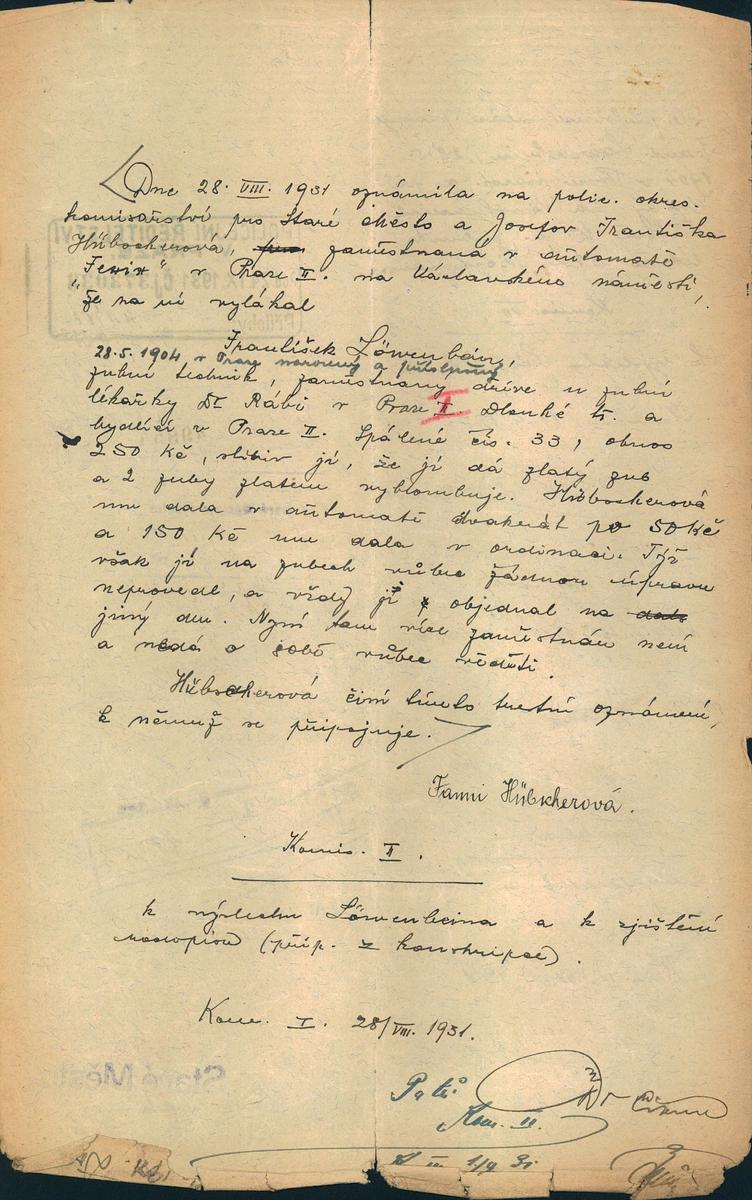 Dne 28. VIII. 1931 oznámila na polic. okres.
komisařství pro Staré Město a Josefov Františka
Hübscherová, zaměstnaná v automatě
"Fenix" v Praze II. na Václavského náměstí,
že na ní vylákal
František Löwenbein,
28.5.1904 v Praze narozený a příslušný
zubní technik, zaměstnaný dříve u zubní
lékařky Dr Rábl v Praze II. Dlouhé tř. a
bydlící v Praze II. Spálené čís. 33, obnos
250 Kč, slibiv jí, že jí dá zlatý zub
a 2 zuby zlatem vyblombuje. Hübscherová
mu dala v automatě dvakrát po 50 Kč
a 150 Kč mu dala v ordinaci. Týž
však jí na zubech vůbec žádnou úpravu
neprovedl, a vždy ji objednal na
jiný den. Nyní tam více zaměstnán není
a nedá o sobě vůbec věděti.
Hübscherová činí tímto trestní oznámení,
k němuž se připojuje.
Fanni Hübscherová.
Komis. II.
k výslechu Löwenbeina a k zjištění
(příp. z konskripce).
Kom. I. 28/VIII. 1931.
Dr
Kom. II.
1/9 31
Staré Měst